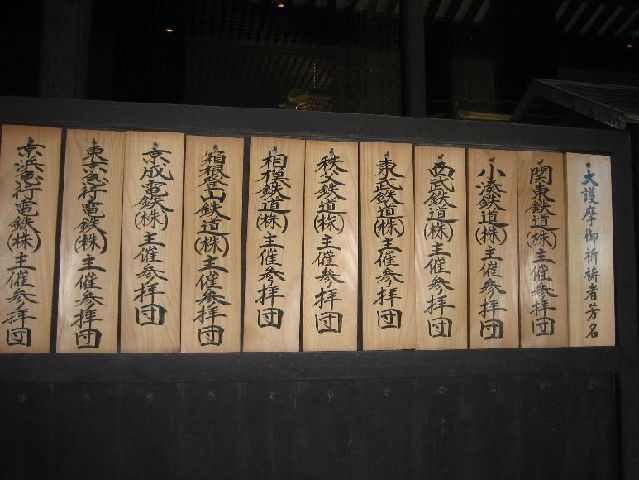 大護摩御祈祷者芳名
関東鉄道(株)主催参拝団
小湊鉄道(株)主催参拝団
西武鉄道(株)主催参拝団
東武鉄道(株)主催参拝団
秩父鉄道(株)主催参拝団
相模鉄道(株)主催参拝団
箱根登山鉄道(株)主催参拝団
京成電鉄(株)主催参拝団
東京急行電鉄(株)主催参拝団
京浜急行電鉄(株)主催参拝団